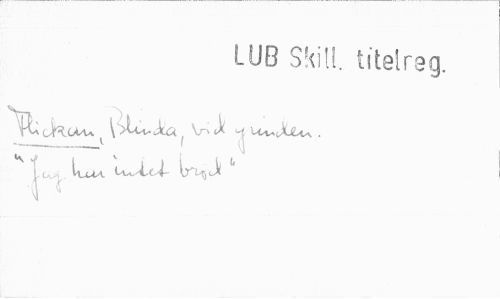 LUB Skill. titelreg.
Flickan, Blinda, vid grinden.
"Jag har intet bröd"